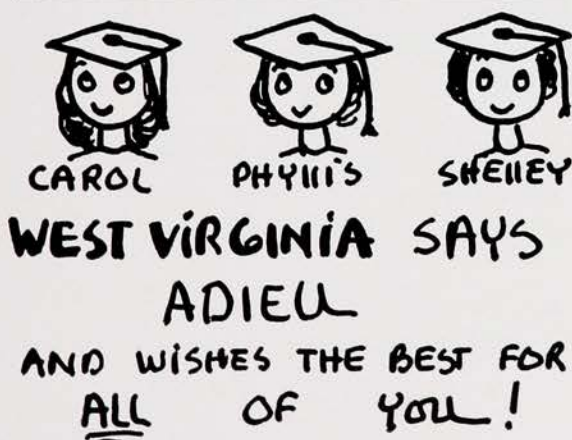 CAROL PHYLLIS SHELLEY
WEST VIRGINIA SAYS
ADIEU
AND WISHES THE BEST FOR
ALL OF YOU!